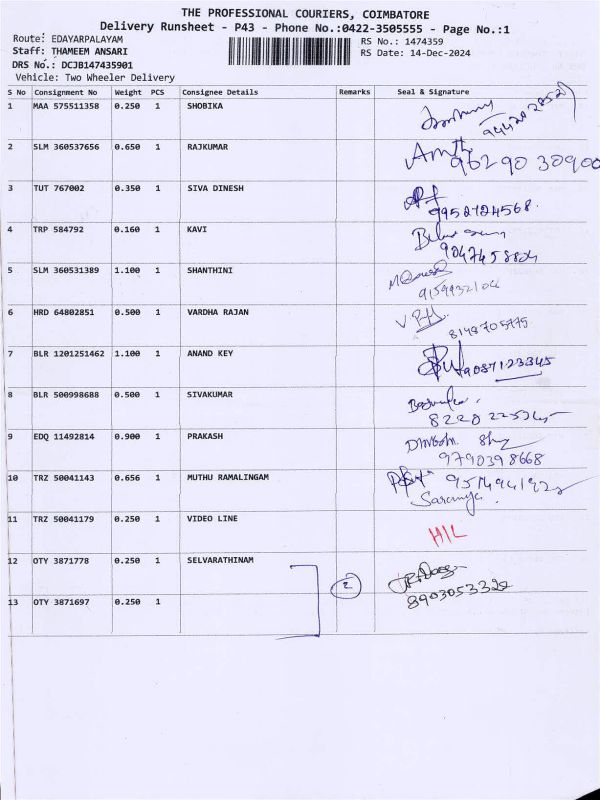 THE PROFESSIONAL COURIERS, COIMBATORE
Delivery Runsheet - P43 - Phone No.:0422-3505555 - Page No.:1
Route: EDAYARPALAYAM
RS No.: 1474359
Staff: THAMEEM ANSARI
RS Date: 14-Dec-2024
DRS No.: DCJB147435901
Vehicle: Two Wheeler Delivery
S No Consignment No Weight PCS Consignee Details Remarks Seal & Signature
1 MAA 575511358 0.250 1 SHOBIKA
2 SLM 360537656 0.650 1 RAJKUMAR
96290 30900
3 TUT 767002 0.350 1 SIVA DINESH
9952724568.
4 TRP 584792 0.160 1 KAVI
9047458804
5 SLM 360531389 1.100 1 SHANTHINI
6 HRD 64802851 0.500 1 VARDHA RAJAN
8148705775
7 BLR 1201251462 1.100 1 ANAND KEY
9087123345
8 BLR 500998688 0.500 1 SIVAKUMAR
9 EDQ 11492814 0.900 1 PRAKASH
9790398668
10 TRZ 50041143 0.656 1 MUTHU RAMALINGAM
Saranya.
11 TRZ 50041179 0.250 1 VIDEO LINE
H/L
12 OTY 3871778 0.250 1 SELVARATHINAM
2
8903053322
13 OTY 3871697 0.250 1